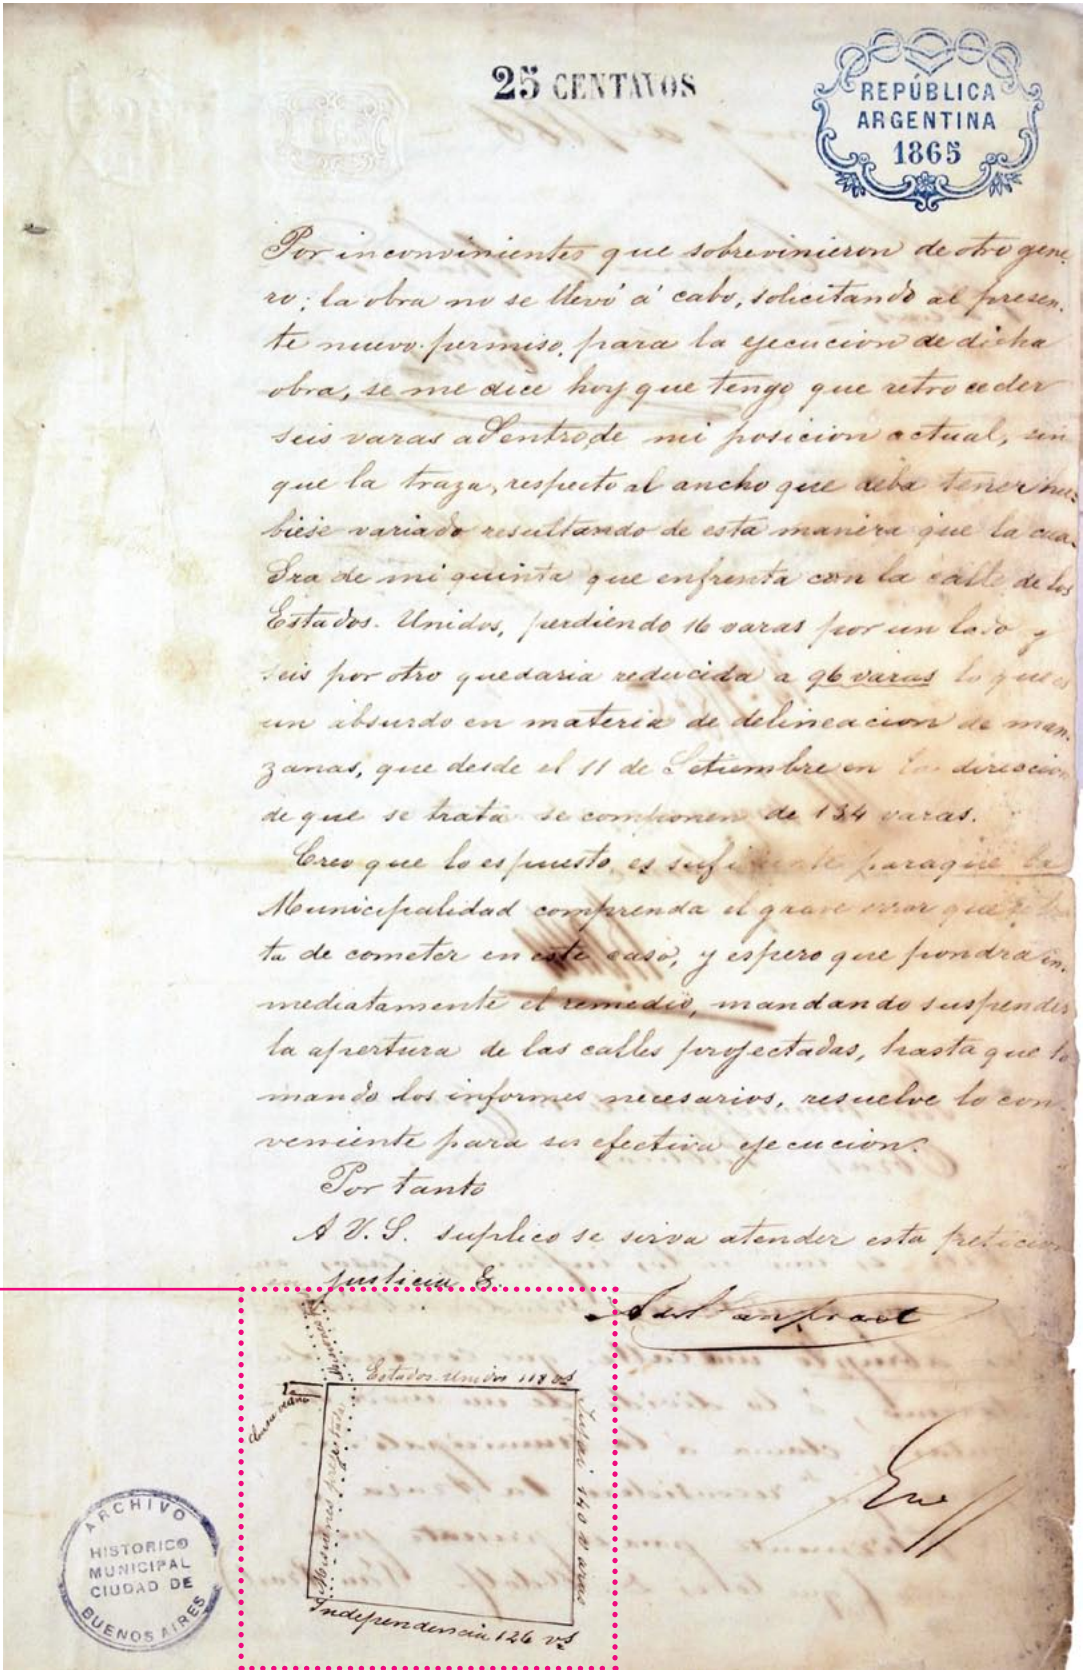 25 CENTAVOS
REPÚBLICA
ARGENTINA
1865
Por inconvinientes que sobrevinieron de otro gene-
ro; la obra no se llevó á cabo, solicitando al presen-
te nuevo permiso, para la ejecucion de dicha
obra, se me dice hoy que tengo que retroceder
seis varas adentro, de mi posicion actual, sin
que la traza, respecto al ancho que deba tener hu-
biese variado resultando de esta manera que la cua-
dra de mi quinta que enfrenta con la calle de los
Estados-Unidos, perdiendo 16 varas por un lado y
seis por otro quedaria reducida a 96 varas lo que es
un absurdo en materia de delineacion de man-
zanas, que desde el 11 de Setiembre en la direccion
de que se trata se componen de 134 varas.
Creo que lo espuesto, es suficiente para que la
Municipalidad comprenda el grave error que se tra-
ta de cometer en este caso, y espero que pondra in-
mediatamente el remedio, mandando suspender
la apertura de las calles projectadas, hasta que to-
mando los informes necesarios, resuelve lo con-
veniente para su efectiva ejecucion.
Por tanto
A V. S. suplico se sirva atender esta peticion
en justicia &.
Misiones
Estados-Unidos 118 vs
Misiones projectada
Jujui 140 varas
Independencia 126 vs
ARCHIVO
HISTORICO
MUNICIPAL
CIUDAD DE
BUENOS AIRES